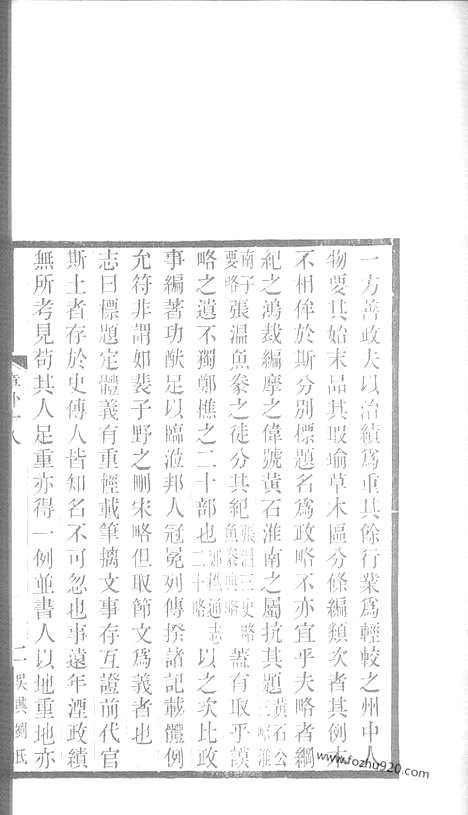 一方善政夫以治績爲重其餘行業爲輕較之州中人
物要其始末品其瑕瑜草木區分條編類次者其例本
不相侔於斯分別標題名爲政略不亦宜乎夫略者綱
紀之鴻裁編摩之偉號黃石淮南之屬抗其題黃石公三略淮
南子要略張溫魚豢之徒分其紀張溫三史略魚豢典略蓋有取乎謨
略之遺不獨鄭樵之二十部也鄭樵通志二十略以之次比政
事編著功猷足以臨涖邦人冠冕列傳揆諸記載體例
允符非謂如裴子野之刪宋略但取節文爲義者也
志曰標題定體義有重輕載筆摛文事存互證前代官
斯土者存於史傳人皆知名不可忽也事遠年湮政績
無所考見苟其人足重亦得一例並書人以地重地亦
章外十八
二
吳興劉氏
www.fozhu920.com